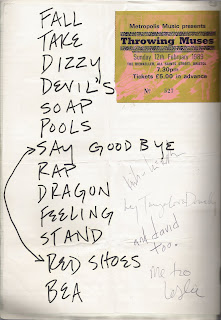 FALL
TAKE
DIZZY
DEVIL'S
SOAP
POOLS
SAY GOODBYE
RAP
DRAGON
FEELING
STAND
RED SHOES
BEA
Metropolis Music presents
Throwing Muses
Sunday 12th February 1989
7:30pm
Tickets £5.00 in advance
No 823
and david
too.
me too
Leslie